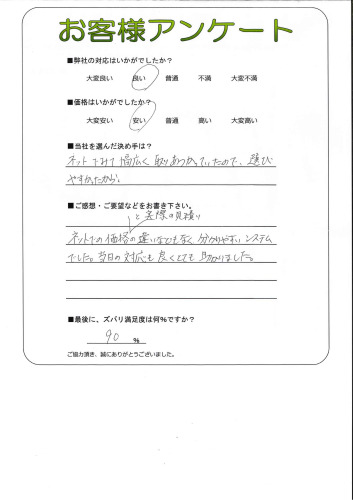 お客様アンケート
■弊社の対応はいかがでしたか?
大変良い 良い 普通 不満 大変不満
■価格はいかがでしたか?
大変安い 安い 普通 高い 大変高い
■当社を選んだ決め手は?
ネットでみて幅広く取りあつかっていたので、選び
やすかったから。
■ご感想・ご要望などをお書き下さい。
と実際の見積り
ネットでの価格の違いなども無く、分かりやすいシステム
でした。当日の対応も良くとても助かりました。
■最後に、ズバリ満足度は何%ですか?
90 %
ご協力頂き、誠にありがとうございました。